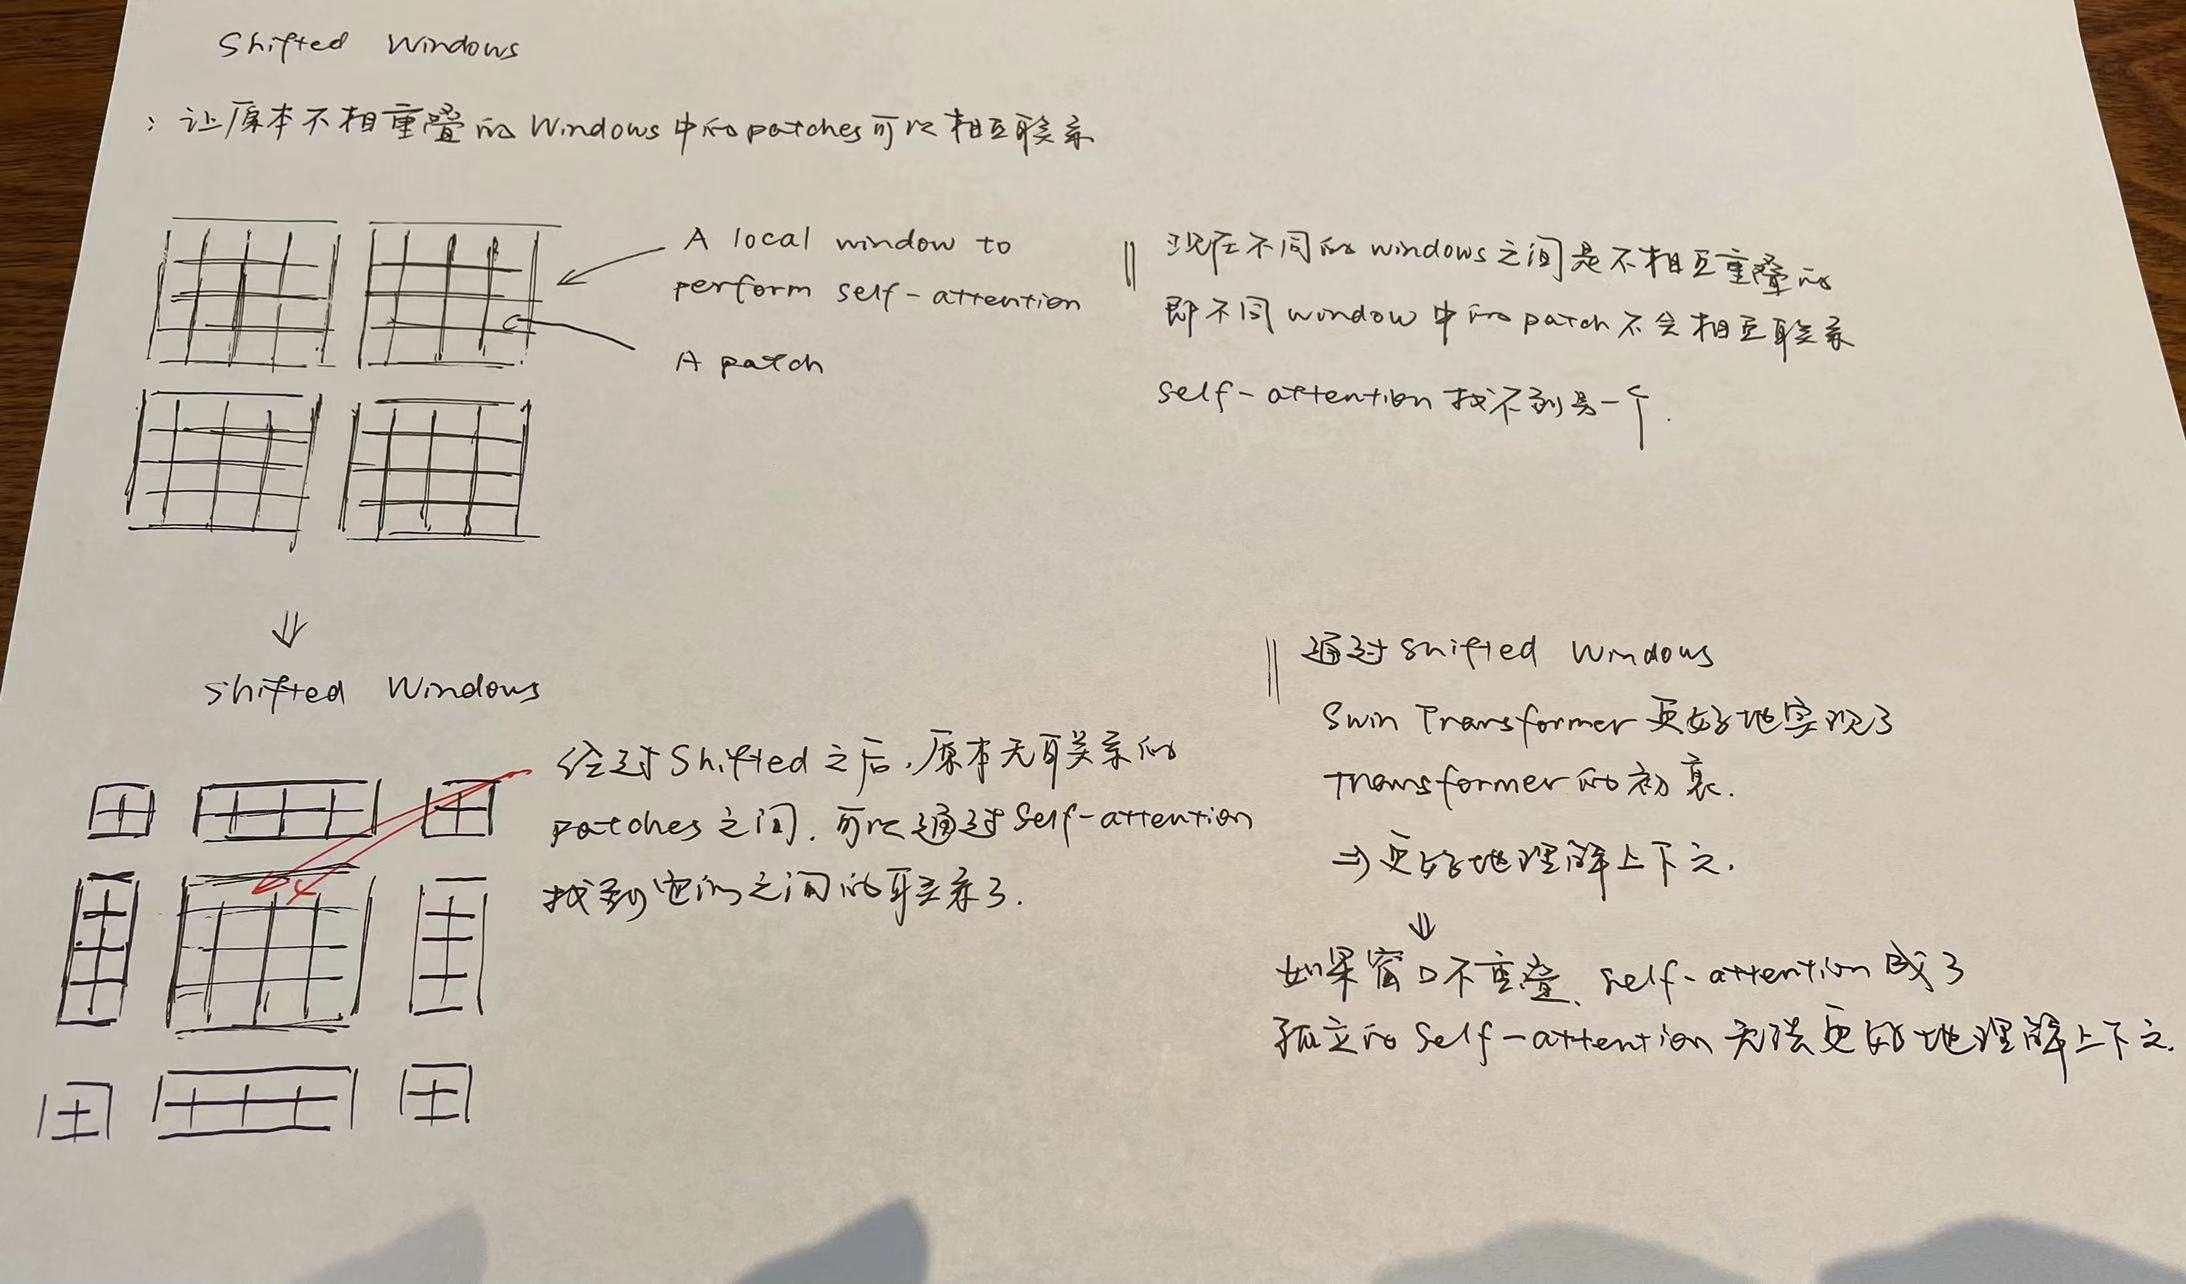 Shifted Windows
: 让原本不相重叠的Windows中的patches可以相互联系
A local window to
perform self-attention
A patch
现在不同的windows之间是不相互重叠的
即不同window中的patch不会相互联系
self-attention找不到另一个.
⇓
Shifted Windows
经过Shifted之后,原本无联系的
patches之间,可以通过Self-attention
找到它们之间的联系了.
通过shifted Windows
Swin Transformer更好地实现了
Transformer的初衷.
⇒更好地理解上下文.
⇓
如果窗口不重叠、self-attention成了
孤立的Self-attention无法更好地理解上下文.